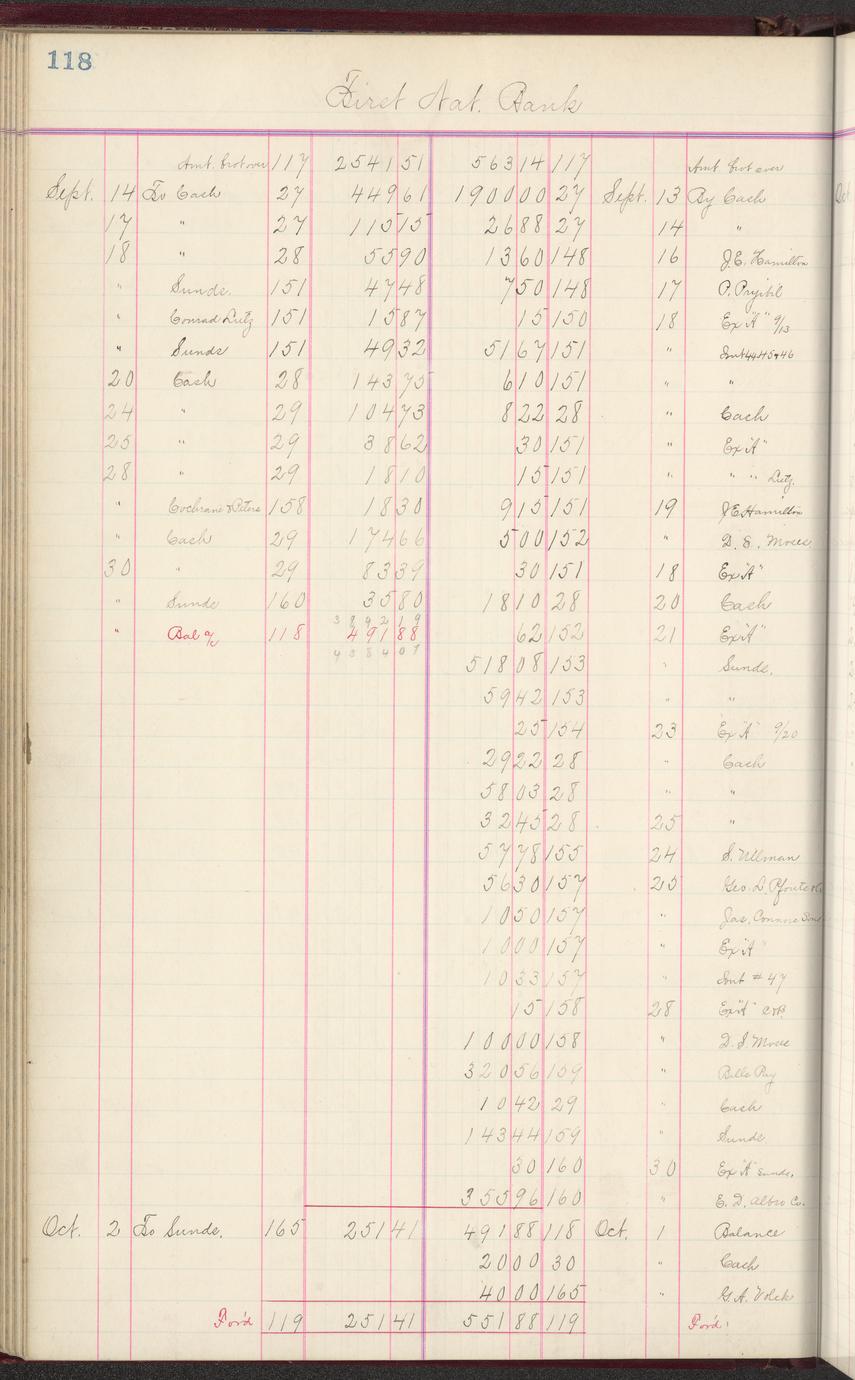 118
First Nat. Bank
Amt. brot over 117 2541 51 563 14 117 Amt brot over
Sept. 14 To Cash 27 449 61 1900 00 27 Sept. 13 By Cash
17 " 27 115 15 26 88 27 14 "
18 " 28 55 90 13 60 148 16 J.E. Hamilton
" Sunds. 151 47 48 7 50 148 17 P. Pryibil
" Conrad Lutz 151 15 87 15 150 18 Ex "A" 9/13
" Sunds 151 49 32 51 67 151 " 44 45 + 46
20 Cash 28 143 75 6 10 151 " "
24 " 29 104 73 8 22 28 " Cash
25 " 29 38 62 30 151 " Ex "A"
28 " 29 18 10 15 151 " " " Lutz.
" Cochrane & Peters 158 18 30 9 15 151 19 J E Hamilton
" Cash 29 174 66 5 00 152 " D. S.
30 " 29 83 39 30 151 18 Ex "A"
" Sunds 160 35 80 18 10 28 20 Cash
3892 19
" Bal a/c 118 491 88 62 152 21 Ex "A"
4384 07
518 08 153 " Sunds.
59 42 153 " "
25 154 23 Ex "A" 9/20
29 22 28 " Cash
58 03 28 " "
32 45 28 25 "
57 78 155 24 S. Ullman
56 30 157 25 Geo. D.
10 50 157 " Jas. Connor Sons
10 00 157 " Ex "A"
10 33 157 " # 47
15 158 28 Ex "A"
100 00 158 " D. S.
320 56 159 " Bills Pay
10 42 29 " Cash
143 44 159 " Sunds
30 160 30 Ex "A" Sunds.
355 96 160 " E. D. Albro Co.
Oct. 2 To Sunds. 165 251 41 491 88 118 Oct. 1 Balance
20 00 30 " Cash
40 00 165 " G. A. Volck
For'd 119 251 41 551 88 119 For'd.